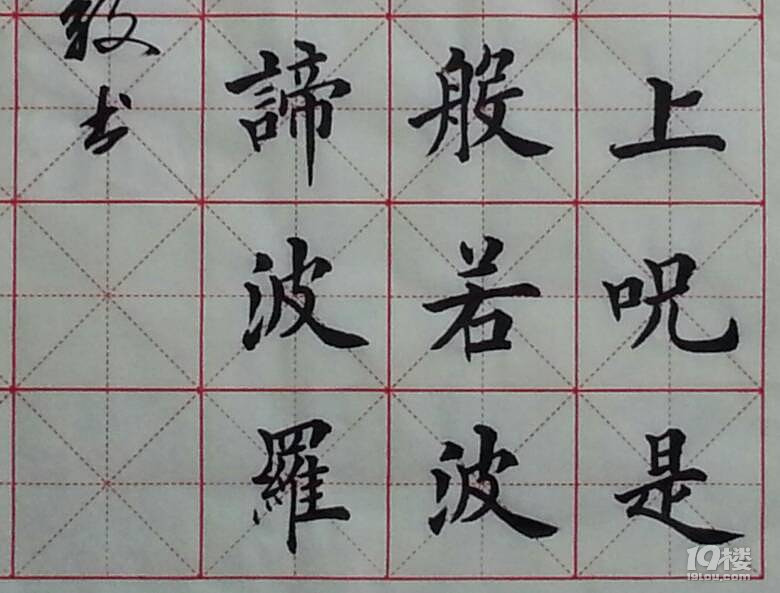 上呪是
般若波
諦波羅
敬书
19楼
19lou.com